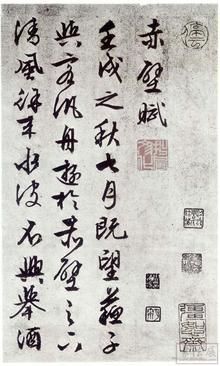 赤壁賦
壬戌之秋七月既望蘇子
與客汎舟遊於赤壁之下
清風徐来水波不興舉酒